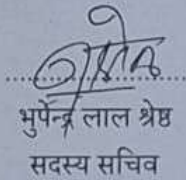 भुपेन्द्र लाल श्रेष्ठ
सदस्य सचिव